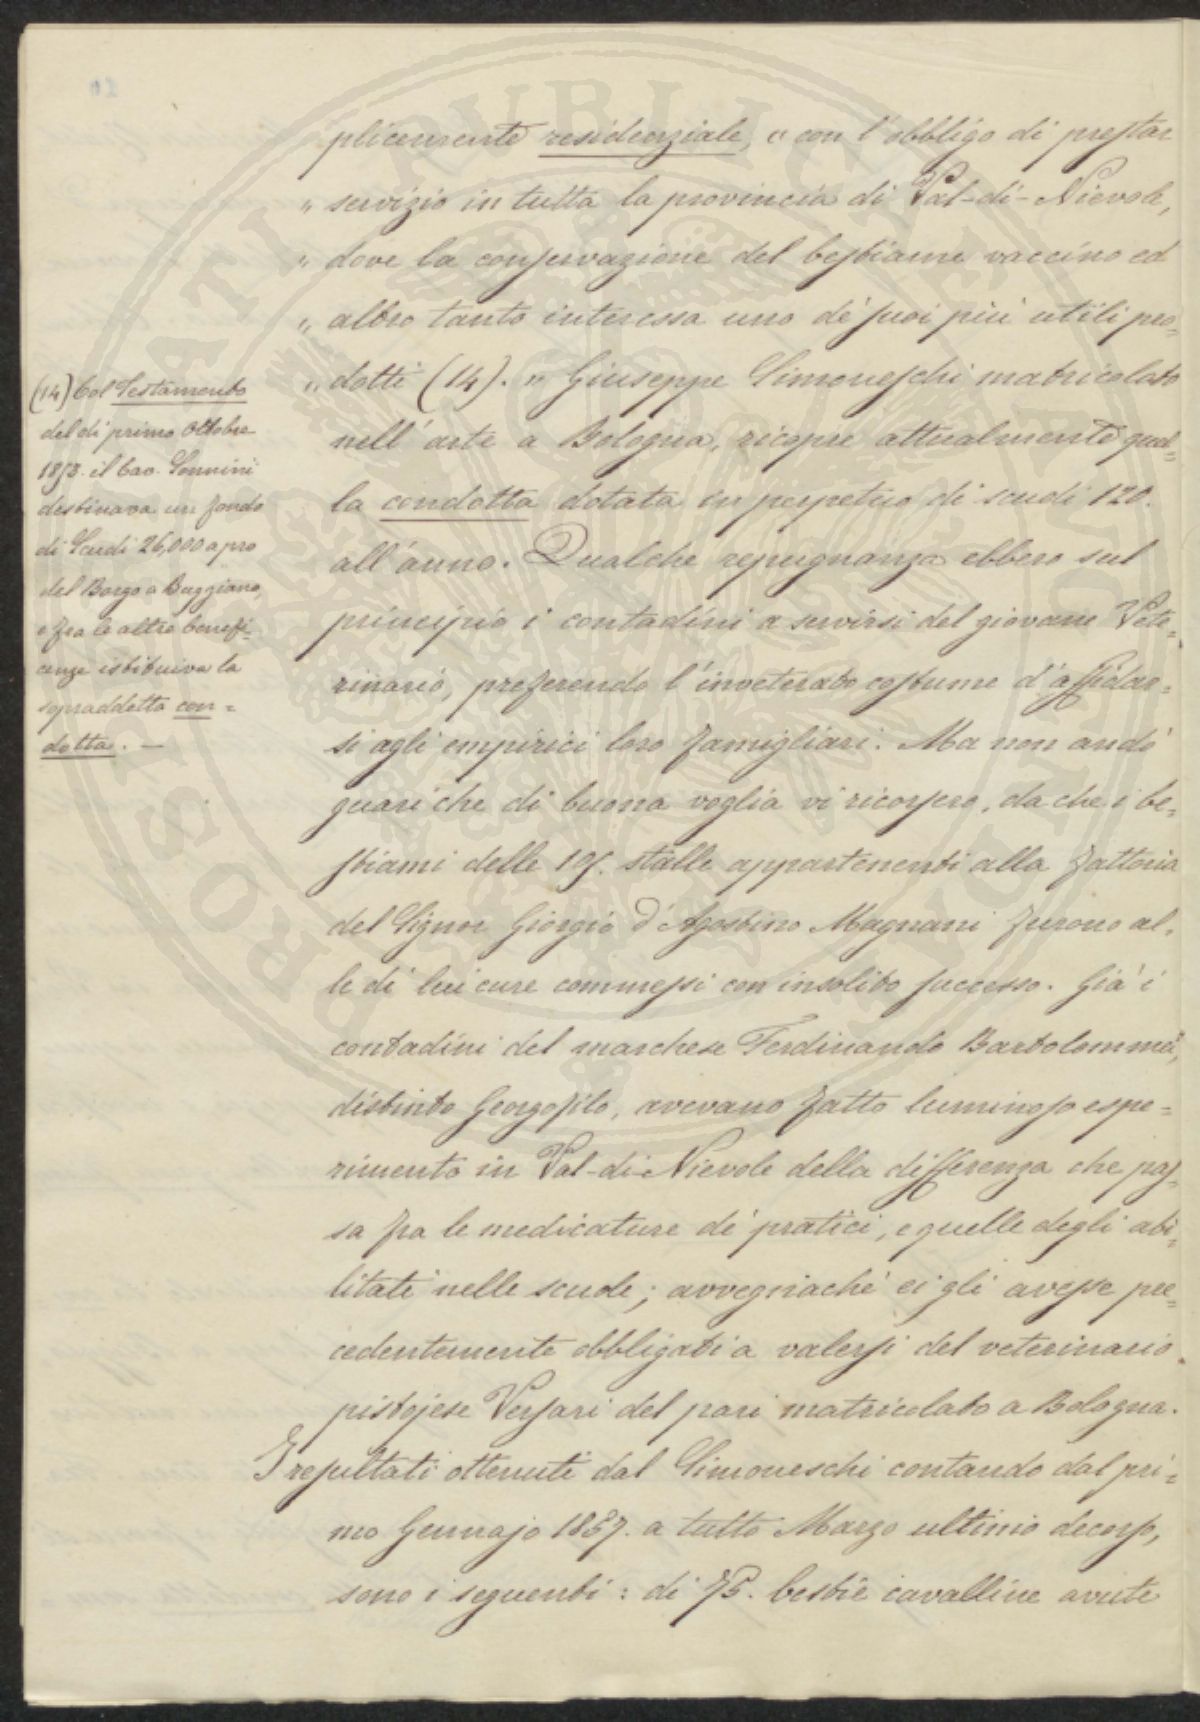 plicemente residenziale, „ con l'obbligo di prestar
„ servizio in tutta la provincia di Val-di-Nievole,
„ dove la conservazione del bestiame vaccino ed
„ altro tanto interessa uno de' suoi più utili pro=
„ dotti (14). „ Giuseppe Simoneschi matricolato
nell'arte a Bologna, ricopre attualmente quel=
la condotta dotata in perpetuo di scudi 120.
all'anno. Qualche repugnanza ebbero sul
principio i contadini a servirsi del giovane Vete=
rinario, preferendo l'inveterato costume d'affidar=
si agli empirici loro famigliari. Ma non andò
guari che di buona voglia vi ricorsero, da che i be=
stiami delle stalle appartenenti alla fattoria
del Signor Giorgio d'Agostino Magnani furono al=
le di lui cure commessi con insolito successo. Già i
contadini del marchese Ferdinando Bartolommei,
distinto Georgofilo, avevano fatto luminoso espe=
rimento in Val-di-Nievole della differenza che pas=
sa fra le medicature de' pratici, e quelle degli abi=
litati nelle scuole; avvegnachè ei gli avesse pre=
cedentemente obbligati a valersi del veterinario
pistojese Versari del pari matricolato a Bologna.
I resultati ottenuti dal Simoneschi contando dal pri=
mo Gennajo 1857. a tutto Marzo ultimo decorso,
sono i seguenti: di 75. bestie cavalline avute
(14) Col Testamento
del dì primo Ottobre
il Cav. Sonnini
destinava un fondo
di Scudi 26,000 a pro
del Borgo a Buggiano,
e fra le altre benefi=
cenze istituiva la
sopraddetta con=
dotta. —